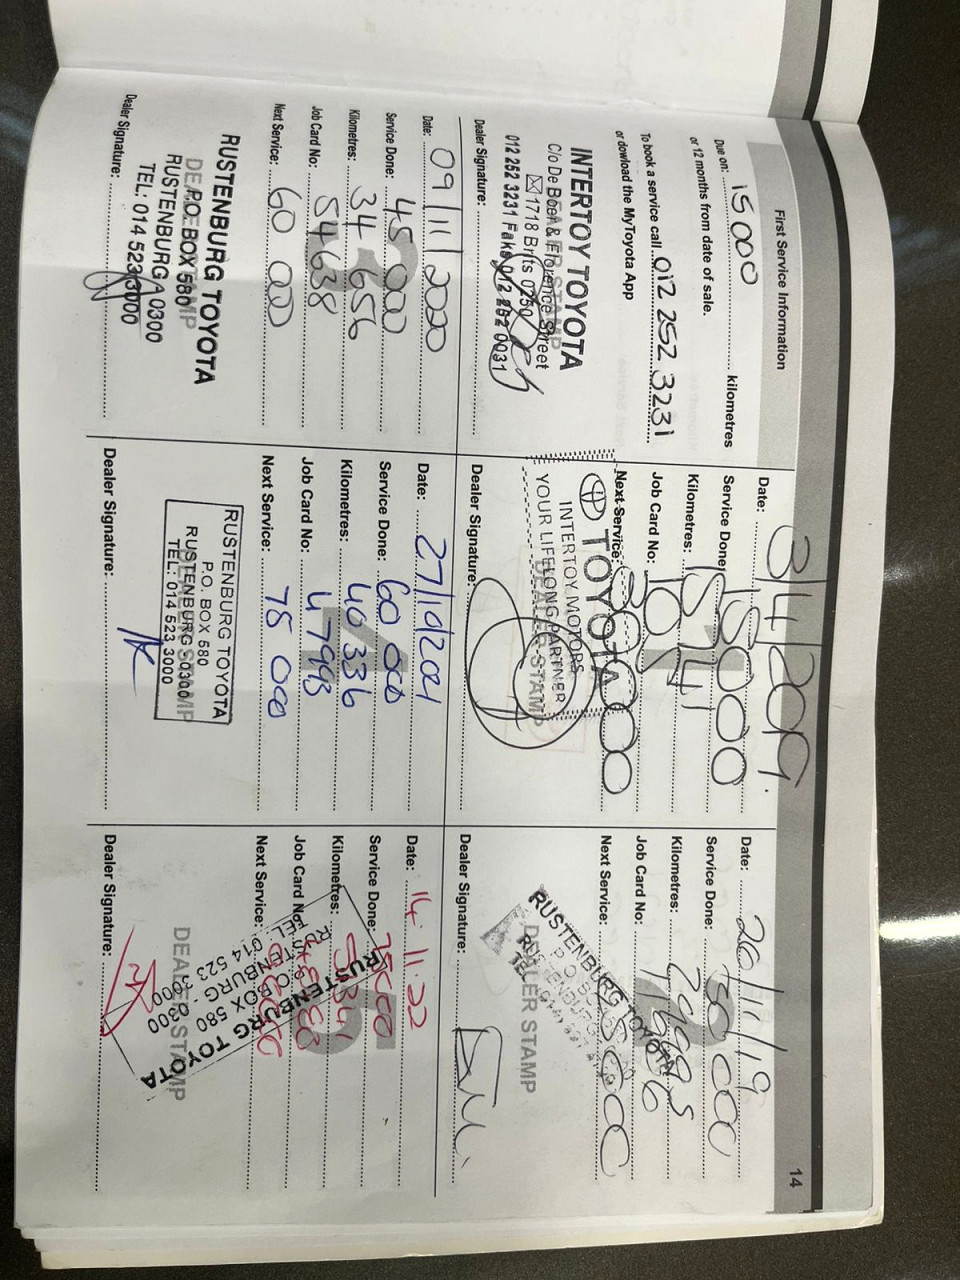 First Service Information
14
Due on: 15 000 kilometres
or 12 months from date of sale.
To book a service call 012 252 3231
or dowload the MyToyota App
INTERTOY TOYOTA
C/o De Boer & Florence Street
1718 Brits 0250
012 252 3231 Faks 012 252 0031
DEALER STAMP
Dealer Signature:
Date: 3/4/2019.
Service Done: 15000
Kilometres: 15741
Job Card No:
Next Service: 30000
TOYOTA
INTERTOY MOTORS
YOUR LIFELONG PARTNER
DEALER STAMP
Dealer Signature:
Date: 20/11/19
Service Done: 30 000
Kilometres:
Job Card No:
Next Service:
RUSTENBURG TOYOTA
P O BOX
RUSTENBURG
DEALER STAMP
Dealer Signature:
Date: 09/11/2020
Service Done: 45 000
Kilometres: 34 656
Job Card No: 54638
Next Service: 60 000
RUSTENBURG TOYOTA
DEALER STAMP
P.O. BOX 580
RUSTENBURG 0300
TEL: 014 523 3000
Dealer Signature:
Date: 27/10/2021
Service Done: 60 000
Kilometres: 40 336
Job Card No: 47993
Next Service: 78 000
RUSTENBURG TOYOTA
P.O. BOX 580
RUSTENBURG 0300
TEL: 014 523 3000
Dealer Signature:
Date: 14.11.22
Service Done: 75000
Kilometres:
Job Card No:
Next Service:
RUSTENBURG TOYOTA
P.O. BOX 580
RUSTENBURG. 0300
TEL 014 523 3000
DEALER STAMP
Dealer Signature: